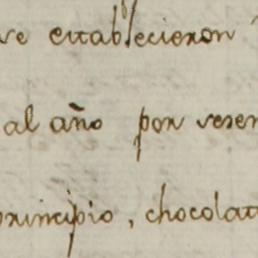 ve establecieron
al año por veren
principio, chocolat